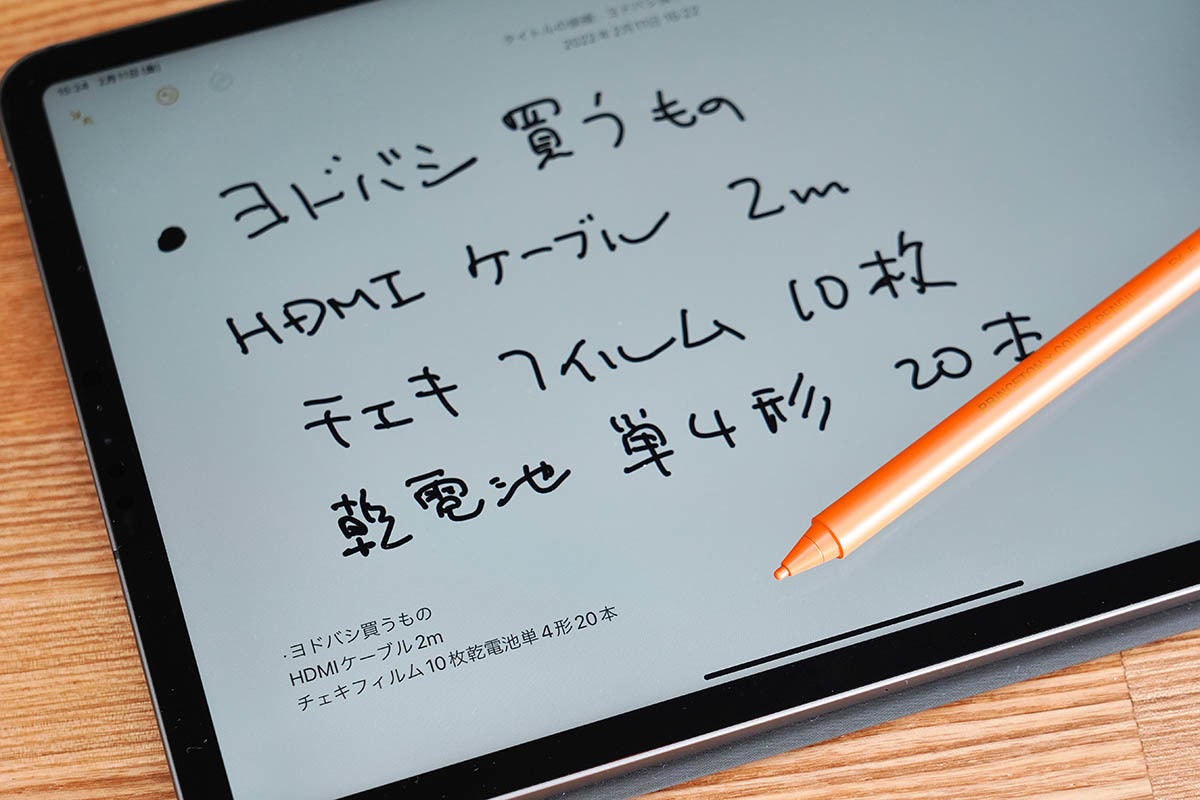 15:24 2月11日(金)
タイトルの候補: ヨドバシ買
2022年2月11日 15:22
● ヨドバシ 買うもの
HDMI ケーブル 2m
チェキ フィルム 10枚
乾電池 単4形 20本
.ヨドバシ買うもの
HDMIケーブル2m
チェキフィルム10枚乾電池単4形20本
PRINCETON × COURY PENCIL